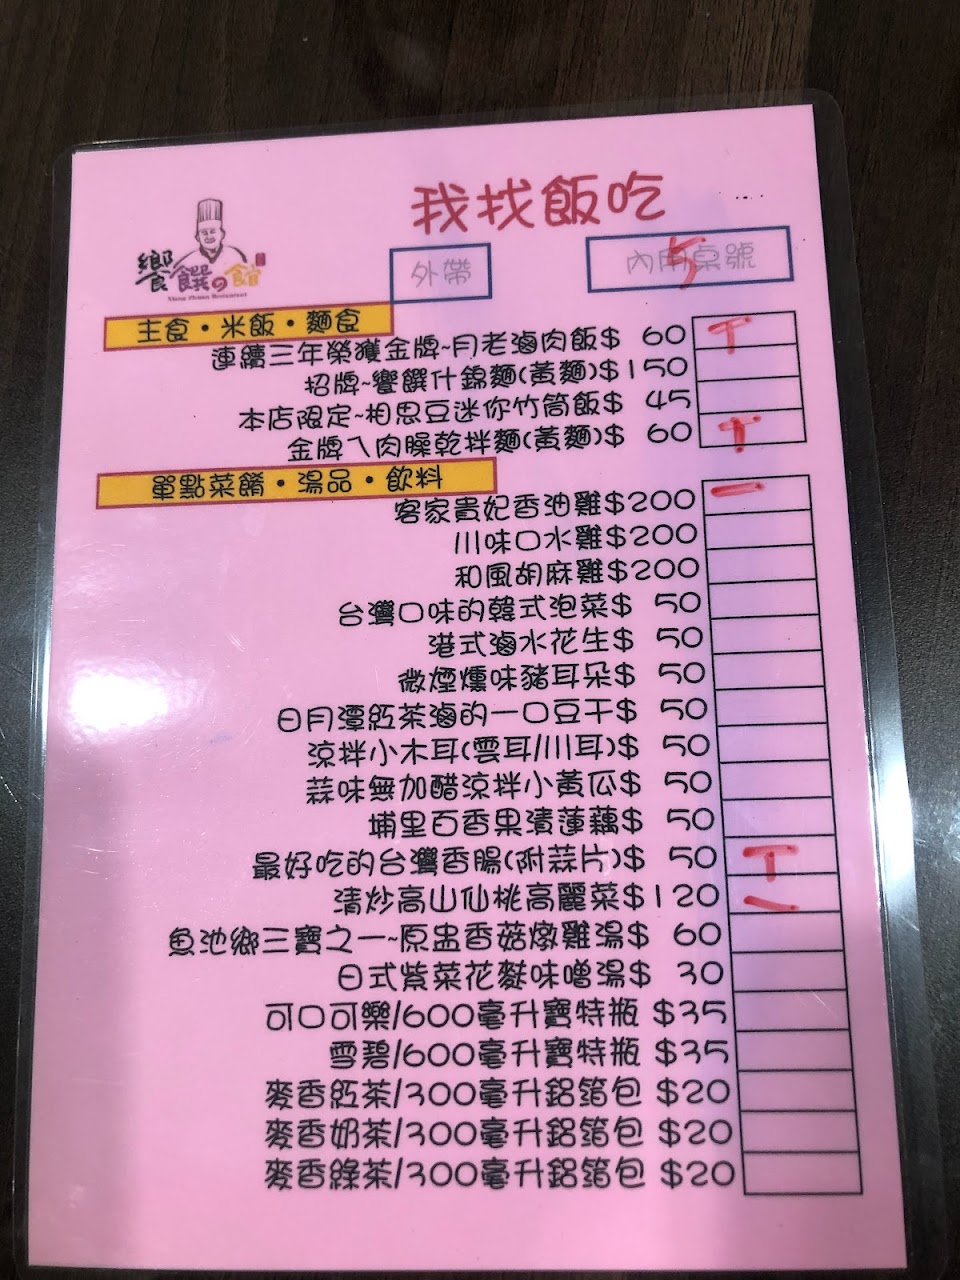 我找飯吃
饗饌の館
Xiang Zhuan Restaurant
外帶
內用桌號
5
主食・米飯・麵食
連續三年榮獲金牌~月老滷肉飯$ 60 T
招牌~饗饌什錦麵(黃麵)$150
本店限定~相思豆迷你竹筒飯$ 45
金牌ㄟ肉臊乾拌麵(黃麵)$ 60 T
單點菜餚・湯品・飲料
客家貴妃香油雞$200 一
川味口水雞$200
和風胡麻雞$200
台灣口味的韓式泡菜$ 50
港式滷水花生$ 50
微煙燻味豬耳朵$ 50
日月潭紅茶滷的一口豆干$ 50
涼拌小木耳(雲耳/川耳)$ 50
蒜味無加醋涼拌小黃瓜$ 50
埔里百香果漬蓮藕$ 50
最好吃的台灣香腸(附蒜片)$ 50 T
清炒高山仙桃高麗菜$120 一
魚池鄉三寶之一~原盅香菇燉雞湯$ 60
日式紫菜花麩味噌湯$ 30
可口可樂/600毫升寶特瓶 $35
雪碧/600毫升寶特瓶 $35
麥香紅茶/300毫升鋁箔包 $20
麥香奶茶/300毫升鋁箔包 $20
麥香綠茶/300毫升鋁箔包 $20